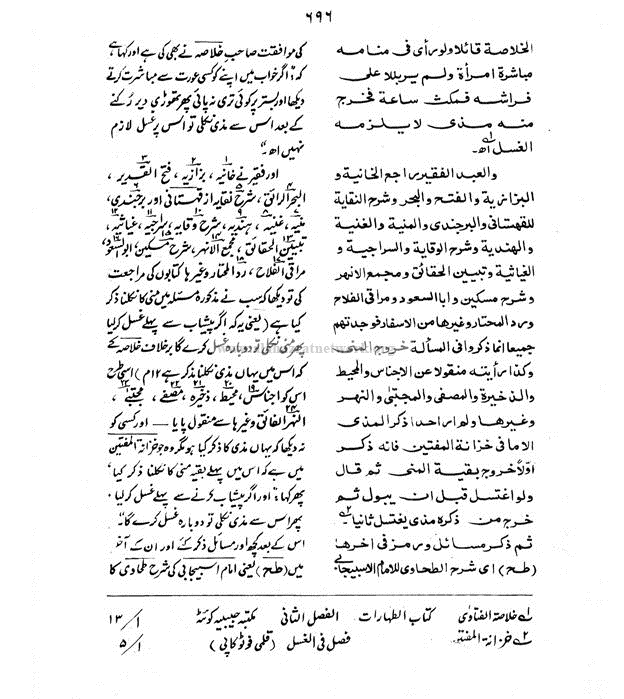 ۶۹۶
الخلاصة قائلا ولو رأى فى منامه
مباشرة امرأة ولم ير بللا على
فراشه فمكث ساعة فخرج
منه مذى لا يلزمه
الغسل اھ
والعبد الفقير راجع الخانية و
البزازية والفتح والبحر وشرح النقاية
للقهستانى والبرجندى والمنية والغنية
والهندية وشرح الوقاية والسراجية و
الغياثية وتبيين الحقائق ومجمع الانهر
وشرح مسكين وابا السعود ومراقى الفلاح
ورد المحتار وغيرها من الاسفار فوجدتهم
جميعا انما ذكروا فى المسألة خروج المنى
وكذا رأيته منقولا عن الاجناس والمحيط
والذخيرة والمصفى والمجتبى والنهر
وغيرها ولم ار احدا ذكر المذى
الا ما فى خزانة المفتين فانه ذكر
اوّلا خروج بقية المنى ثم قال
ولو اغتسل قبل ان يبول ثم
خرج من ذكره مذى يغتسل ثانيا
ثم ذكر مسائل ورمز فى اخرها
(طح) اى شرح الطحاوى للامام الاسبيجابى
کی موافقت صاحبِ خلاصہ نے بھی کی ہے اور کہا ہے
کہ: اگر خواب میں اپنے کو کسی عورت سے مباشرت کرتے
دیکھا اور بستر پر کوئی تری نہ پائی پھر تھوڑی دیر رُکنے
کے بعد اس سے مذی نکلی تو اس پر غسل لازم
نہیں اھ۔"
اور فقیر نے خانیہ، بزازیہ، فتح القدیر،
البحر الرائق، شرح نقایہ از قہستانی اور برجندی،
منیہ، غنیہ، ہندیہ، شرح وقایہ، سراجیہ، غیاثیہ،
تبیین الحقائق، مجمع الانہر، شرح مسکین، ابو السعود،
مراقی الفلاح، رد المحتار وغیرہا کتابوں کی مراجعت
کی تو دیکھا کہ سب نے مذکورہ مسئلہ میں منی کا نکلنا ذکر
کیا ہے (یعنی یہ کہ اگر پیشاب سے پہلے غسل کر لیا
پھر منی نکلی تو دوبارہ غسل کرے گا برخلاف خلاصہ کے
کہ اس میں یہاں مذی نکلنا مذکور ہے ۱۲م) اسی طرح
اس کو اجناس، محیط، ذخیرہ، مصفی، مجتبیٰ،
النہر الفائق وغیرہا سے منقول پایا — اور کسی کو
نہ دیکھا کہ یہاں مذی کا ذکر کیا ہو مگر وہ جو خزانۃ المفتین
میں ہے کہ اس میں پہلے بقیہ منی کا نکلنا ذکر کیا"
پھر کہا: "اور اگر پیشاب کرنے سے پہلے غسل کر لیا
پھر اس سے مذی نکلی تو دوبارہ غسل کرے گا"۔
اس کے بعد کچھ اور مسائل ذکر کئے اور ان کے آخر
میں (طح) یعنی امام اسبیجابی کی شرح طحاوی کا
۱؎ خلاصۃ الفتاوٰی کتاب الطہارات الفصل الثانی مکتبہ حبیبیہ کوئٹہ ۱/ ۱۳
۲؎ خزانۃ المفتین فصل فی الغسل (قلمی فوٹو کاپی) ۱/ ۵